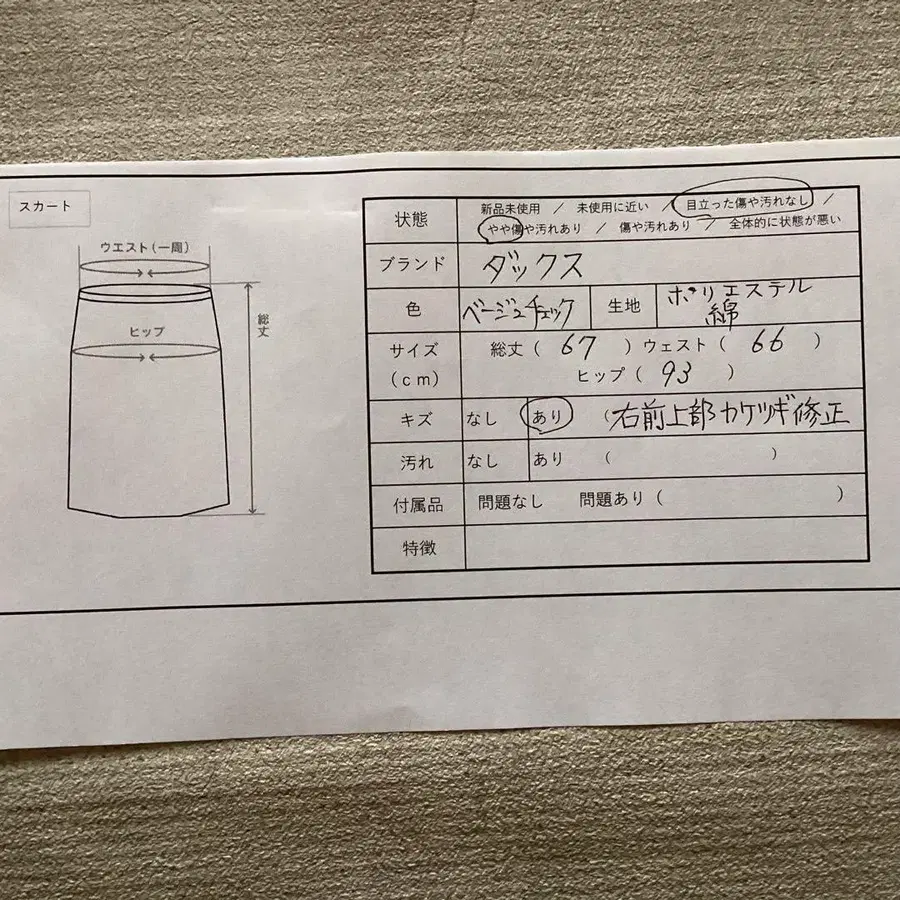 スカート
ウエスト(一周)
ヒップ
総丈
状態 新品未使用 / 未使用に近い / 目立った傷や汚れなし /
やや傷や汚れあり / 傷や汚れあり / 全体的に状態が悪い
ブランド ダックス
色 ベージュチェック 生地 ポリエステル
綿
サイズ 総丈( 67 ) ウェスト( 66 )
(cm) ヒップ( 93 )
キズ なし あり (右前上部カケツギ修正
汚れ なし あり ( )
付属品 問題なし 問題あり( )
特徴